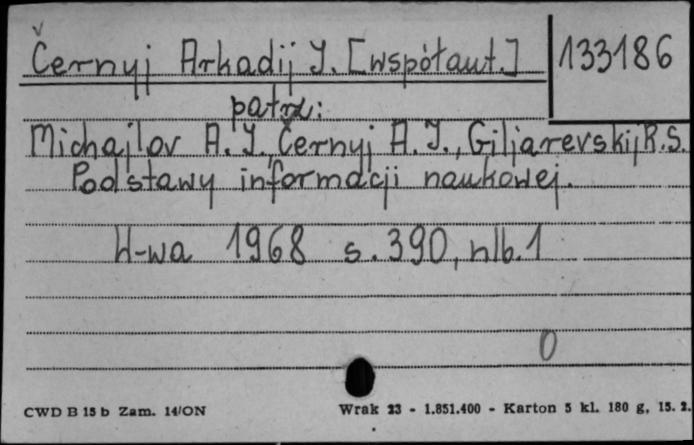 Černyj Arkadij J. [współaut.]
133186
patrz:
Michajlov A. J., Černyj A. J., Giljarevskij R.S.
Podstawy informacji naukowej.
W-wa 1968 s. 390, nlb. 1
0
CWD B 15 b Zam. 14/ON
Wrak 23 - 1.851.400 - Karton 5 kl. 180 g, 15. 2.